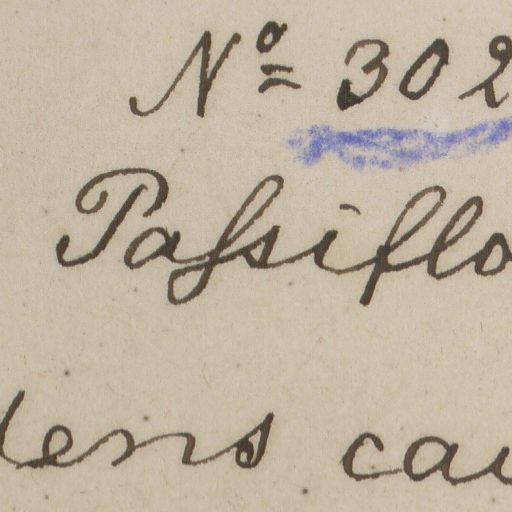 Nº 302
Paſsiflo
dens cau